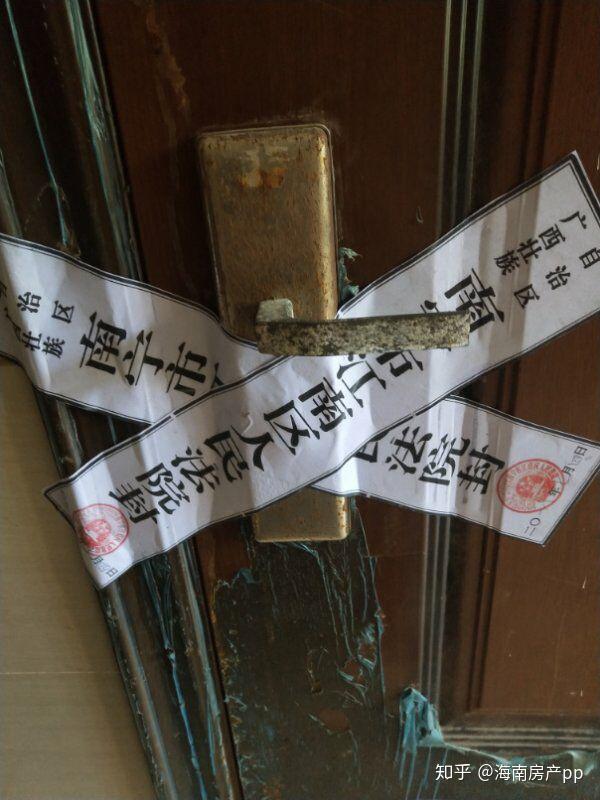 广西壮族
自治区
南宁市江南区人民法院封
治区
壮族
南宁市
法院封
知乎 @海南房产pp